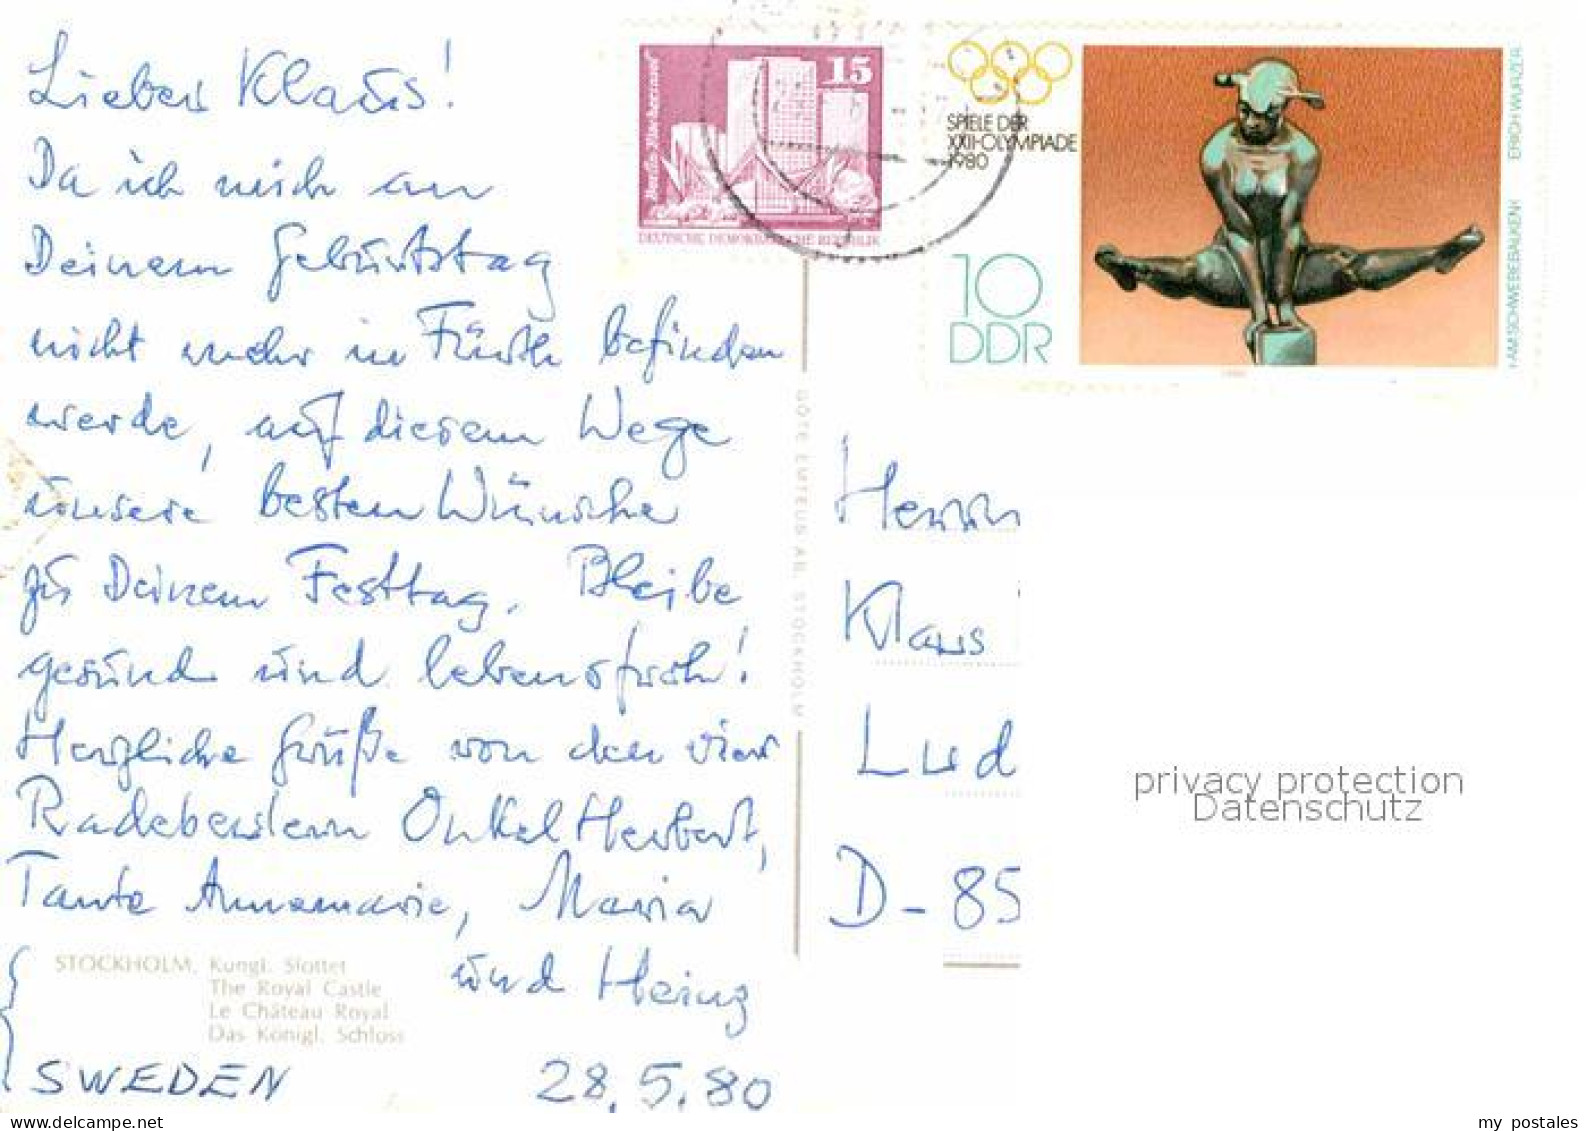 Lieber Klaus!
Da ich mich an
Deinem Geburtstag
nicht mehr in Fürth befinden
werde, auf diesem Wege
unsere besten Wünsche
zu Deinem Festtag. Bleibe
gesund und lebensfroh!
Herzliche Grüße von den vier
Radeberglern Onkel Herbert,
Tante Annemarie, Maria
und Heinz
STOCKHOLM, Kungl. Slottet
The Royal Castle
Le Château Royal
Das Königl. Schloss
SWEDEN 28.5.80
15
Berlin Fischerinsel
DEUTSCHE DEMOKRATISCHE REPUBLIK
SPIELE DER
XXII•OLYMPIADE
1980
10
DDR
»AM SCHWEBEBALKEN« ERICH WURZER
GÖTE EMTEUS AB, STOCKHOLM
Herrn
Klaus
Lud
D-85
privacy protection
Datenschutz
my postales